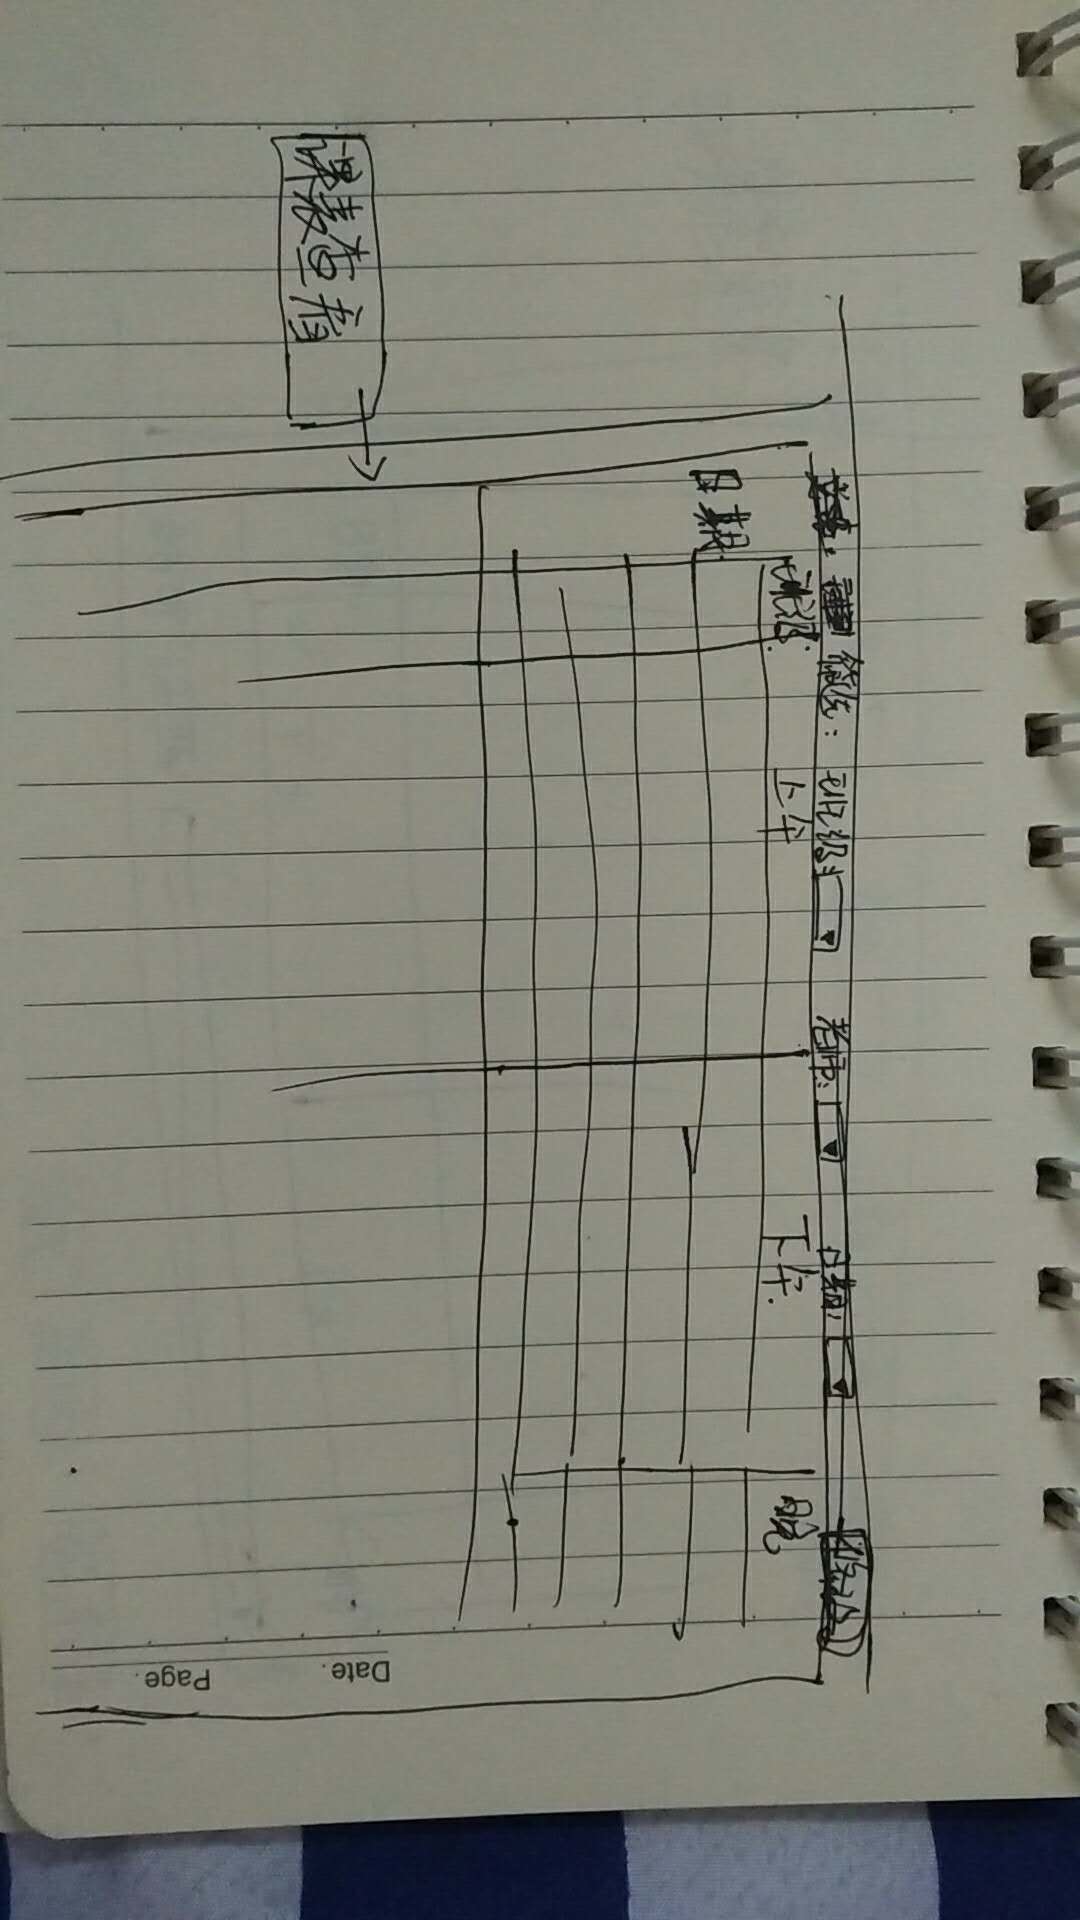 筛选: 班级: 老师: 日期:
班级: 上午 下午. 晚
日期
课表查看
Date.
Page.